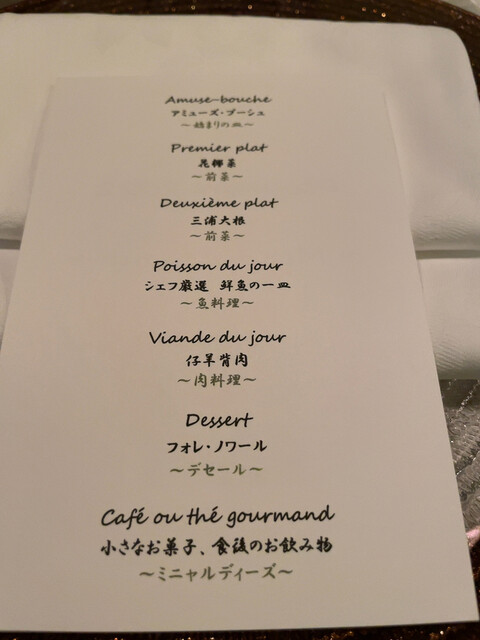 Amuse-bouche
アミューズ・ブーシュ
～始まりの皿～
Premier plat
花椰菜
～前菜～
Deuxième plat
三浦大根
～前菜～
Poisson du jour
シェフ厳選 鮮魚の一皿
～魚料理～
Viande du jour
仔羊背肉
～肉料理～
Dessert
フォレ・ノワール
～デセール～
Café ou thé gourmand
小さなお菓子、食後のお飲み物
～ミニャルディーズ～